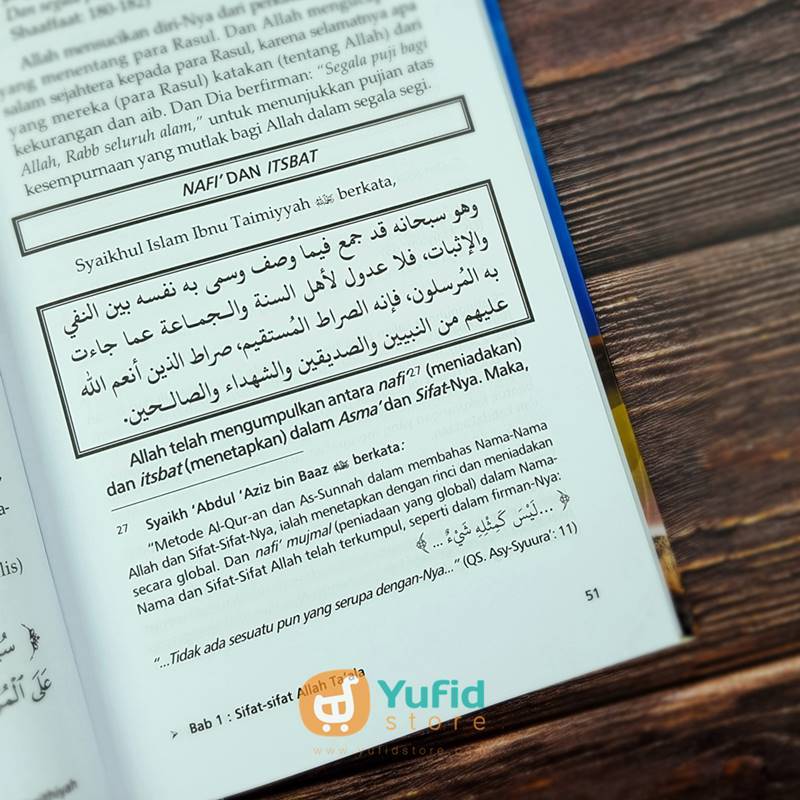 Dan segala
Shaaffaat: 180-182)
Allah mensucikan diri-Nya dari
yang menentang para Rasul. Dan Allah
salam sejahtera kepada para Rasul, karena selamatnya apa
yang mereka (para Rasul) katakan (tentang Allah) dari
kekurangan dan aib. Dan Dia berfirman: "Segala puji bagi
Allah, Rabb seluruh alam," untuk menunjukkan pujian atas
kesempurnaan yang mutlak bagi Allah dalam segala segi.
NAFI' DAN ITSBAT
Syaikhul Islam Ibnu Taimiyyah berkata,
وهو سبحانه قد جمع فيما وصف وسمى به نفسه بين النفي
والإثبات، فلا عدول لأهل السنة والـجمـاعة عما جاءت
به المُرسلون، فإنه الصراط المُستقيم، صراط الذين أنعم الله
عليهم من النبيين والصديقين والشهداء والصالـحين.
Allah telah mengumpulkan antara nafi'27 (meniadakan)
dan itsbat (menetapkan) dalam Asma' dan Sifat-Nya. Maka,
27 Syaikh 'Abdul 'Aziz bin Baaz berkata:
"Metode Al-Qur-an dan As-Sunnah dalam membahas Nama-Nama
Allah dan Sifat-Sifat-Nya, ialah menetapkan dengan rinci dan meniadakan
secara global. Dan nafi' mujmal (peniadaan yang global) dalam Nama-
Nama dan Sifat-Sifat Allah telah terkumpul, seperti dalam firman-Nya:
﴿ ...لَيْسَ كَمِثْلِهِ شَيْءٌ ... ﴾
"...Tidak ada sesuatu pun yang serupa dengan-Nya..." (QS. Asy-Syuura': 11)
51
➢ Bab 1 : Sifat-sifat Allah Ta'ala
a-
lis)
عَلَى
Yufid
store
www.yufidstore.com